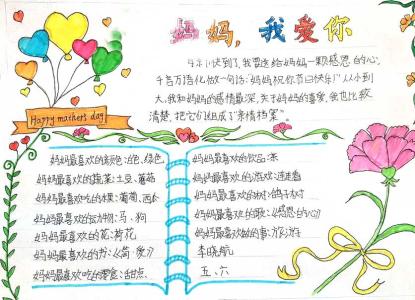 妈妈,我爱你
Happy mathers day
节快到了,我要送给妈妈一颗感恩的心,
千言万语化做一句话:"妈妈祝你节日快乐!"从小到
大,我和妈妈的感情最深,关于妈妈的喜爱,我也比较
清楚,把它们组成了"亲情档案"。
妈妈最喜欢的颜色:白色、绿色
妈妈最喜欢的蔬菜:土豆、蕃茄
妈妈最喜欢吃的水果:葡萄、西瓜
妈妈最喜欢的动物:马、狗
妈妈最喜欢的花:荷花
妈妈最喜欢的书:《简·爱》
妈妈最喜欢吃的零食:甜点
妈妈最喜欢的饮品:茶
妈妈最喜欢的游戏:连连看
妈妈最喜欢的树:鸽子树
妈妈最喜欢的歌:《感恩的心》
妈妈最喜欢做的事:旅游
李晓航
五、六